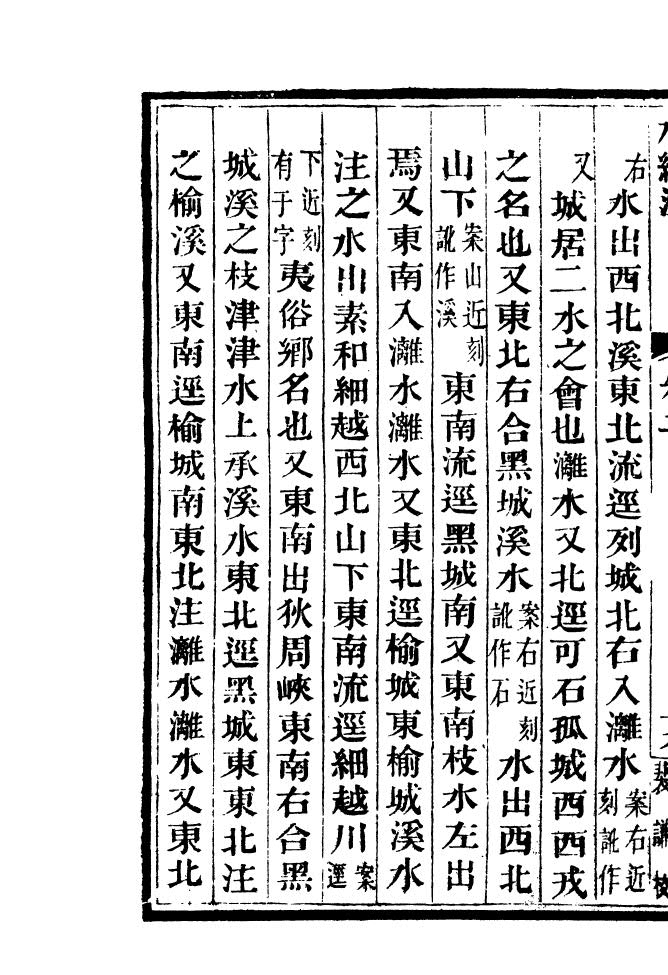 右水出西北溪東北流逕列城北右入灕水案右近刻訛作
又城居二水之會也灕水又北逕可石孤城西西戎
之名也又東北右合黑城溪水案右近刻訛作石水出西北
山下案山近刻訛作溪東南流逕黑城南又東南枝水左出
焉又東南入灕水灕水又東北逕榆城東榆城溪水
注之水出素和細越西北山下東南流逕細越川案逕
下近刻有于字夷俗鄉名也又東南出狄周峽東南右合黑
城溪之枝津津水上承溪水東北逕黑城東東北注
之榆溪又東南逕榆城南東北注灕水灕水又東北